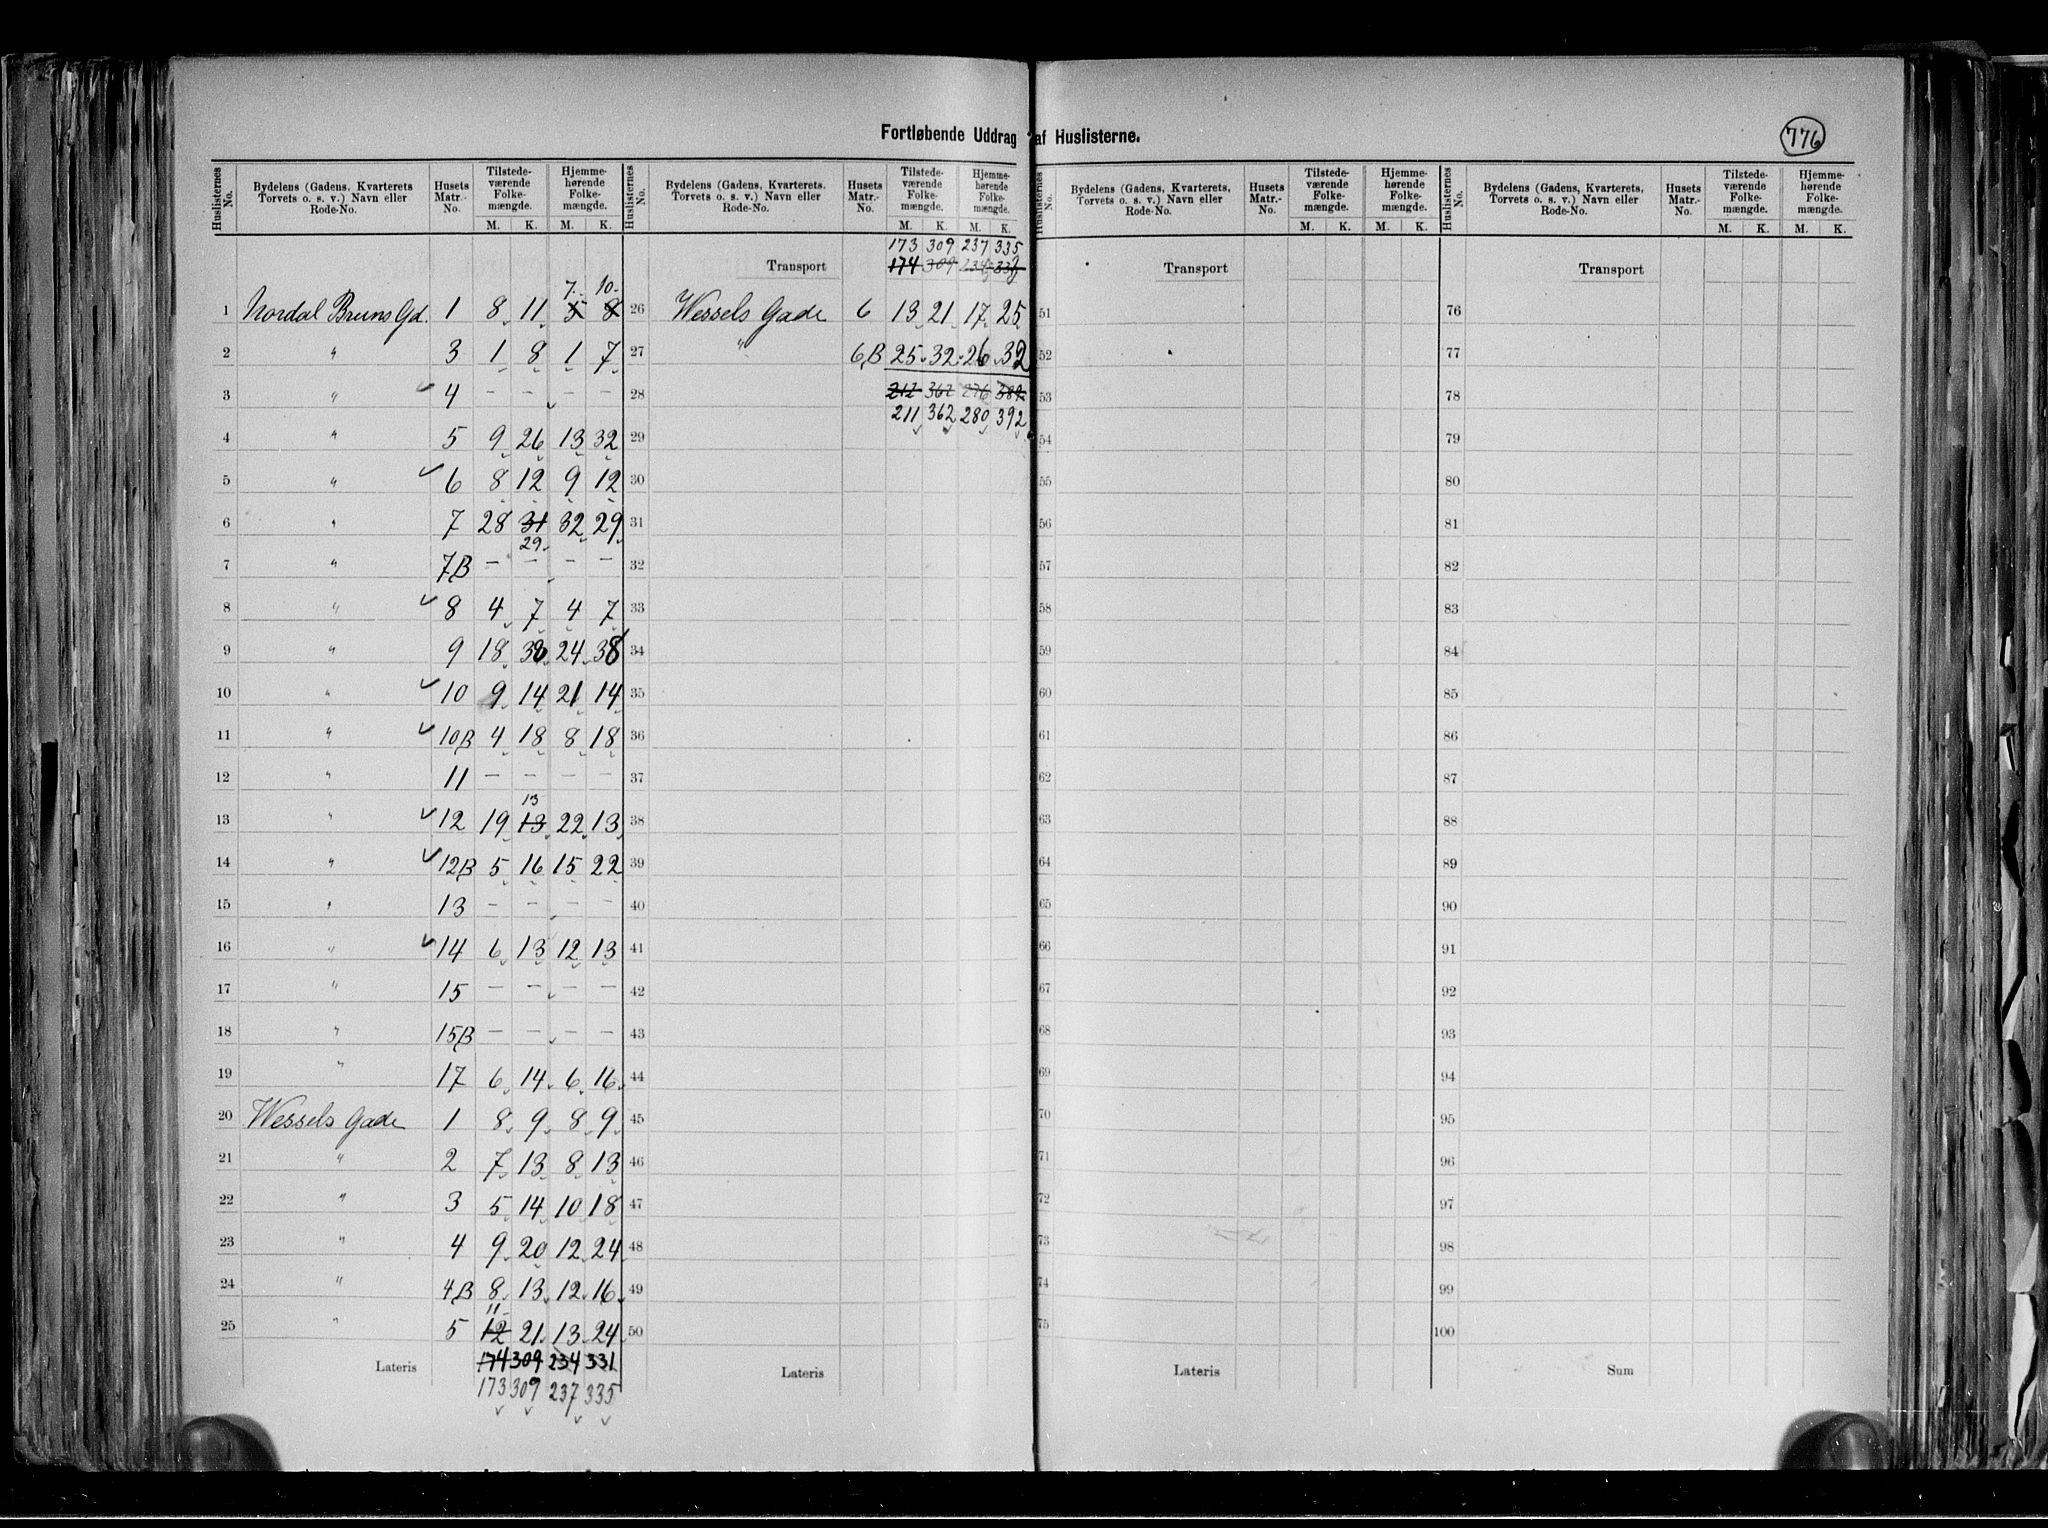 Fortløbende Uddrag af Huslisterne.
776
Huslisternes No. | Bydelens (Gadens, Kvarterets Torvets o. s. v.) Navn eller Rode-No. | Husets Matr.-No. | Tilstede-værende Folke-mængde. M. K. | Hjemme-hørende Folke-mængde. M. K.
1 Nordal Bruns Gd. 1 8 11 5 8 7 10
2 " 3 1 8 1 7
3 " 4 – – – –
4 " 5 9 26 13 32
5 " 6 8 12 9 12
6 " 7 28 31 32 29
29
7 " 7B – – – –
8 " 8 4 7 4 7
9 " 9 18 38 24 38
10 " 10 9 14 21 14
11 " 10B 4 18 8 18
12 " 11 – – – –
13 " 12 19 13 22 13
13
14 " 12B 5 16 15 22
15 " 13 – – – –
16 " 14 6 13 12 13
17 " 15 – – – –
18 " 15B – – – –
19 " 17 6 14 6 16
20 Wessels Gade 1 8 9 8 9
21 " 2 7 13 8 13
22 " 3 5 14 10 18
23 " 4 9 20 12 24
24 " 4B 8 13 12 16
11
25 " 5 12 21 13 24
Lateris 174 309 234 331
173 309 237 335
Huslisternes No. | Bydelens (Gadens, Kvarterets. Torvets o. s. v.) Navn eller Rode-No. | Husets Matr.-No. | Tilstede-værende Folke-mængde. M. K. | Hjemme-hørende Folke-mængde. M. K.
173 309 237 335
Transport 174 309 234
26 Wessels Gade 6 13 21 17 25
27 " 6B 25 32 26 32
28 212 362 276
211 362 280 392
29
30
31
32
33
34
35
36
37
38
39
40
41
42
43
44
45
46
47
48
49
50
Lateris
Huslisternes No. | Bydelens (Gadens, Kvarterets, Torvets o. s. v.) Navn eller Rode-No. | Husets Matr.-No. | Tilstede-værende Folke-mængde. M. K. | Hjemme-hørende Folke-mængde. M. K.
Transport
51
52
53
54
55
56
57
58
59
60
61
62
63
64
65
66
67
68
69
70
71
72
73
74
75
Lateris
Huslisternes No. | Bydelens (Gadens, Kvarterets, Torvets o. s. v.) Navn eller Rode-No. | Husets Matr.-No. | Tilstede-værende Folke-mængde. M. K. | Hjemme-hørende Folke-mængde. M. K.
Transport
76
77
78
79
80
81
82
83
84
85
86
87
88
89
90
91
92
93
94
95
96
97
98
99
100
Sum